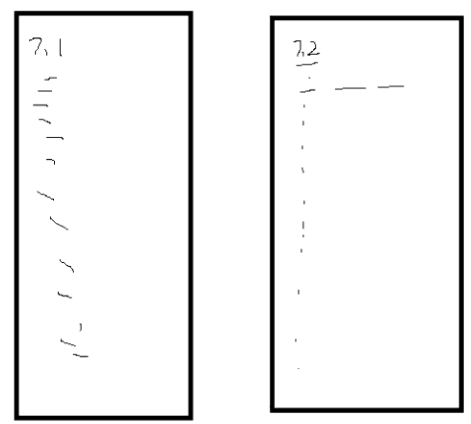 7.1
7.2